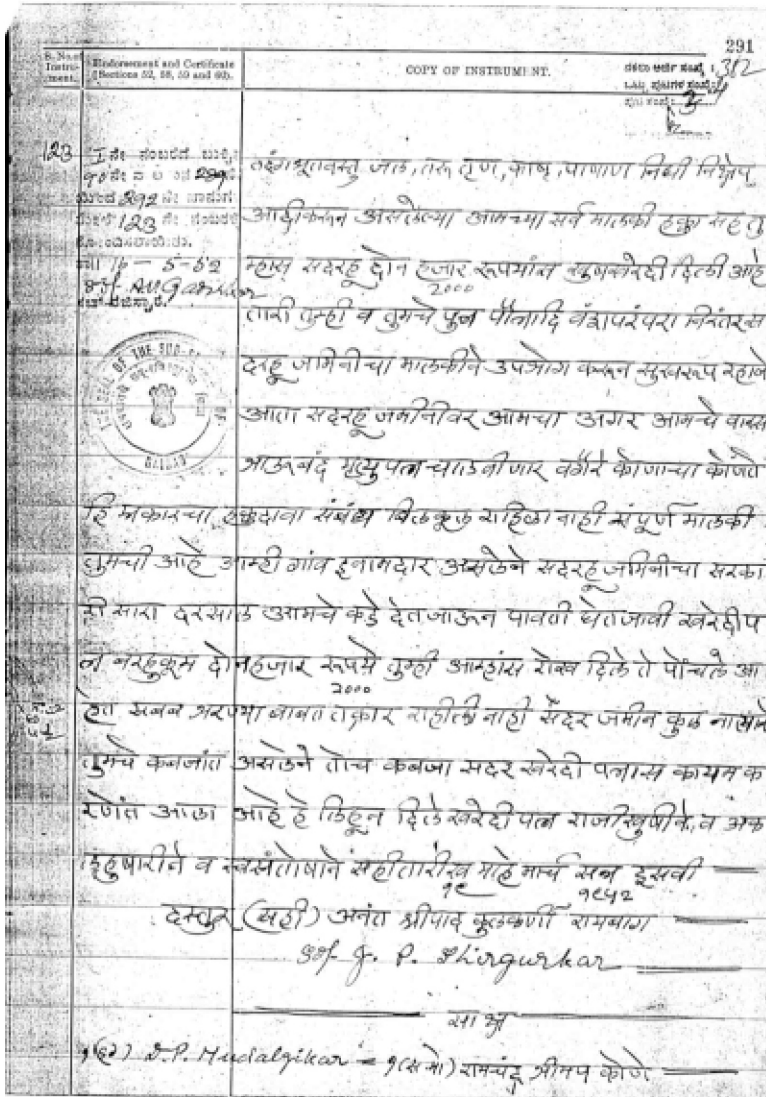 291
S. No. of Instrument.
Endorsement and Certificate (Sections 52, 58, 59 and 60).
COPY OF INSTRUMENT.
312
123
जल, तरु तृण, काष्ट, पाषाण निधी निक्षेप
आदीकरून असलेल्या आमच्या सर्व मालकी हक्का सह तु
म्हास सदरहू दोन हजार रूपयांस खुषखरेदी दिली आहे
2000
तरी तुम्ही व तुमचे पुत्र पौत्रादि वंशपरंपरा निरंतर स
दरहू जमिनीचा मालकीने उपभोग करून सुखरूप रहावे
आता सदरहू जमीनीवर आमचा अगर आमचे वारस
भाऊबंद मृत्युपत्र चालवीणार वगैरे कोणाचा कोणते
हि प्रकारचा हक्कदावा संबंध बिलकूल राहिला नाही संपूर्ण मालकी
तुमची आहे आम्ही गांव इनामदार असलेने सदरहू जमिनीचा सरका
री सारा दरसाल आमचे कडे देत जाऊन पावती घेत जावी खरेदीप
त्र बरहुकूम दोनहजार रूपये तुम्ही आम्हांस रोख दिले ते पोंचले आ
2000
हेत सबब भरण्या बाबत तक्रार राहीली नाही सदर जमीन कुळ नात्याने
तुमचे कबजांत असलेने तोच कबजा सदर खरेदी पत्रास कायम क
रणेंत आला आहे हे लिहून दिले खरेदी पत्र राजीखुषीने, व अक
लहुषारीने व स्वसंतोषाने सही तारीख माहे मार्च सन इसवी
१९ १९५२
दस्तुर (सही) अनंत श्रीपाद कुलकर्णी रामबाग
Sd/- J. P. Shirgurkar
साक्ष
D. P. Mudalgikar १(स मो) रामचंद्र